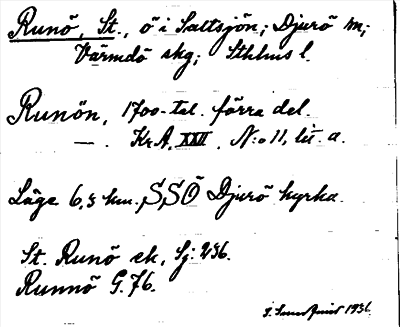 Runö, St., ö i Saltsjön; Djurö m;
Värmdö skg; Sthlms l.
Runön, 1700-tal. förra del.
— . Kr.A. XXVI, N:o 11, lit. a.
Läge 6,5 km. SSÖ Djurö kyrka.
St. Runö ek, Sj: 236.
Runnö G. 76.
1936.